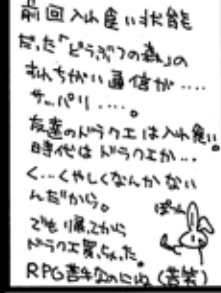 前回入れ食い状態
だった「どうぶつの森」の
すれちがい通信が‥‥
サッパリ‥‥。
友達のドラクエは入れ食い。
時代はドラクエか…
く…くやしくなんかない
んだから。
でも帰ってから
ドラクエ買っちゃった。
RPG苦手なのにね(苦笑)